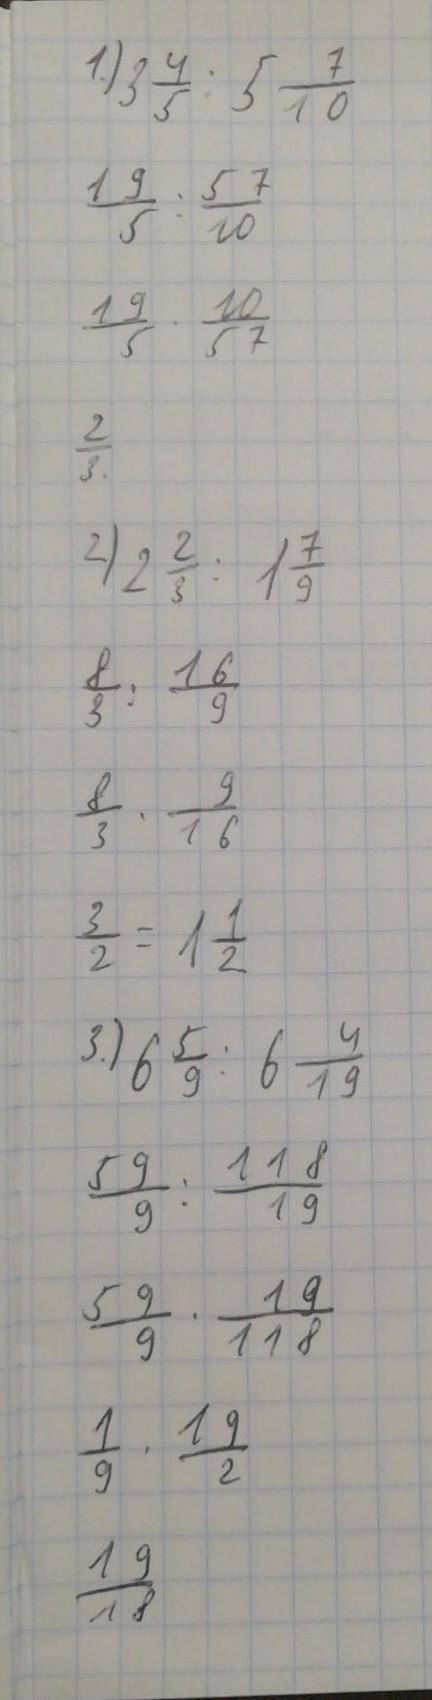 1.) 3 4/5 : 5 7/10
19/5 : 57/10
19/5 · 10/57
2/3.
2) 2 2/3 : 1 7/9
8/3 : 16/9
8/3 · 9/16
3/2 = 1 1/2
3.) 6 5/9 : 6 4/19
59/9 : 118/19
59/9 · 19/118
1/9 · 19/2
19/18